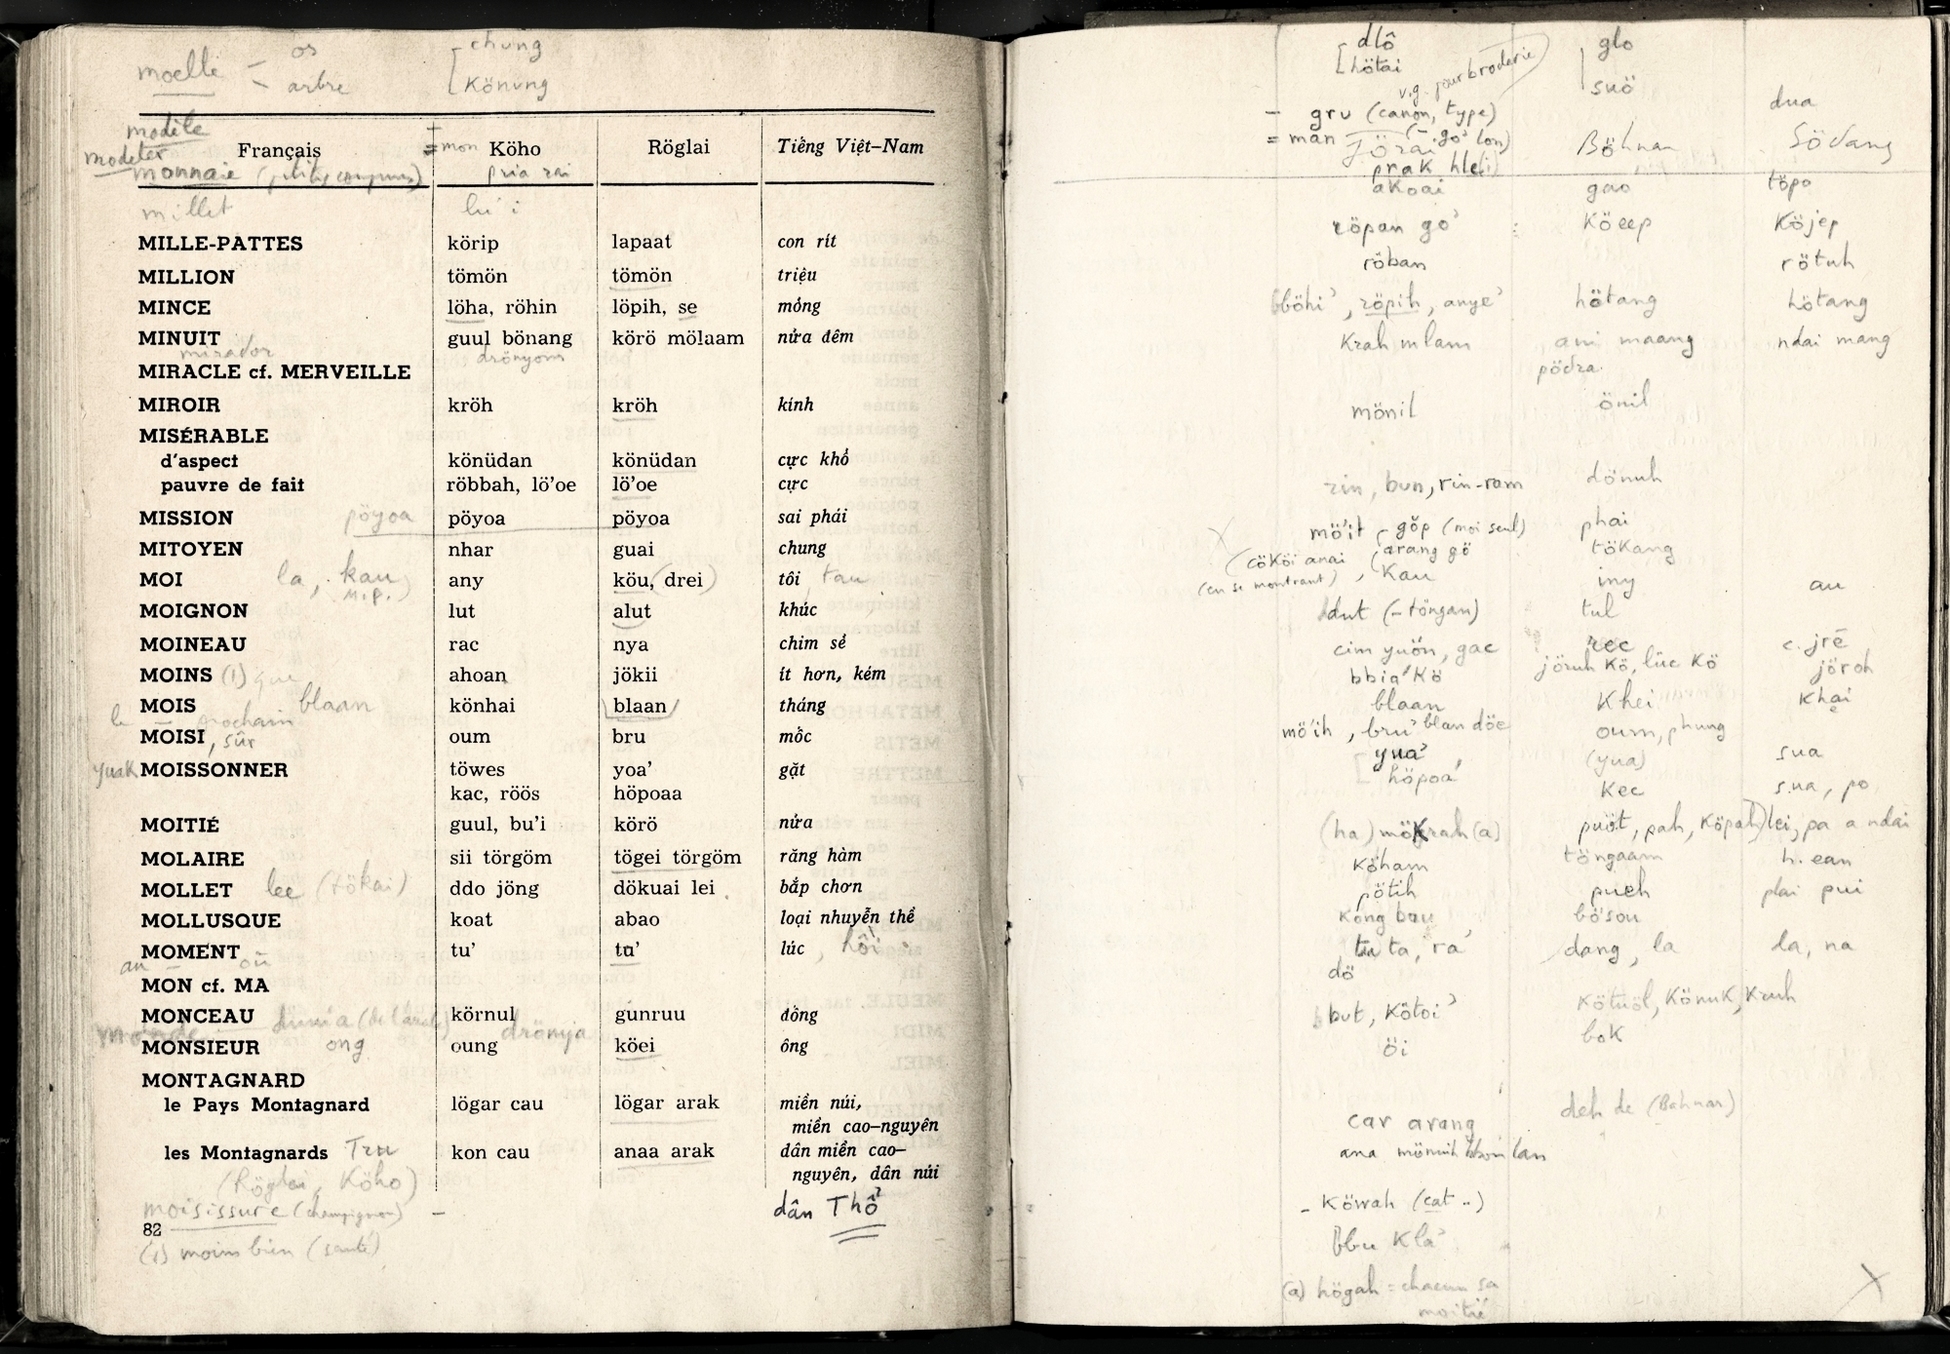 moelle - os chung
- arbre Könung
modèle
modeler Français = mon Köho Röglai Tiếng Việt-Nam
monnaie pria rai
millet
MILLE-PATTES körip lapaat con rít
MILLION tömön tömön triệu
MINCE löha, röhin löpih, se mỏng
MINUIT guul bönang körö mölaam nửa đêm
mirador drönyom
MIRACLE cf. MERVEILLE
MIROIR kröh kröh kính
MISÉRABLE
d'aspect könüdan könüdan cực khổ
pauvre de fait röbbah, lö'oe lö'oe cực
MISSION pöyoa pöyoa pöyoa sai phái
MITOYEN nhar guai chung
MOI la, kau any köu, (drei) tôi tau
M.P.
MOIGNON lut alut khúc
MOINEAU rac nya chim sẻ
MOINS (1) que ahoan jökii ít hơn, kém
MOIS blaan könhai blaan tháng
le — prochain
MOISI, sûr oum bru mốc
yuak MOISSONNER töwes yoa' gặt
kac, röös höpoaa
MOITIÉ guul, bu'i körö nửa
MOLAIRE sii törgöm tögei törgöm răng hàm
MOLLET lee (tökai) ddo jöng dökuai lei bắp chơn
MOLLUSQUE koat abao loại nhuyễn thể
MOMENT tu' tu' lúc, hồi
au — où
MON cf. MA
MONCEAU körnul gunruu đống
monde drönya
MONSIEUR ong oung köei ông
MONTAGNARD
le Pays Montagnard lögar cau lögar arak miền núi,
miền cao-nguyên
les Montagnards Tru kon cau anaa arak dân miền cao-
(Röglai, Köho) nguyên, dân núi
moisissure (champignon) - dân Thổ
82
(1) moins bien (santé)
dlô glo
hötai suö
v.g. pour broderie
- gru (canon, type) dua
= man Jörai Böhnan Södang
prak
akoai gao töpo
röpan go' Köeep Köjep
röban rötuh
bböhi', röpih, anye' hötang hötang
Krah mlam ani maang ndai mang
pödra
mönil önil
rin, bun, rin-ram dönuh
mö'it göp (moi seul) phai
(cököi anai arang gö tökang
(en se montrant), Kau iny au
dut (- töngan) tul
cim yuön, gac rec c. jrē
bbia' Kö jöruh Kö, lüc Kö jöroh
blaan Khei Khai
mö'ih, bru' blan döe oum, phung
yua' (yua) sua
höpoa' Kec sua, po
(ha) mökrah (a) puöt, pah, Köpah lei, pa a ndai
Köham töngaam h. ean
pötih pueh plai pui
Kong bau bö'sou
tu ta, ra' dang, la la, na
dö
but, Kötoi' Kötuöl, Könuk, Kruh
bok
öi
car arang deh de (Bahnar)
ana mönuih bbon lan
- Köwah (cat ..)
bbu Kla'
(a) högah = chacun sa
moitié